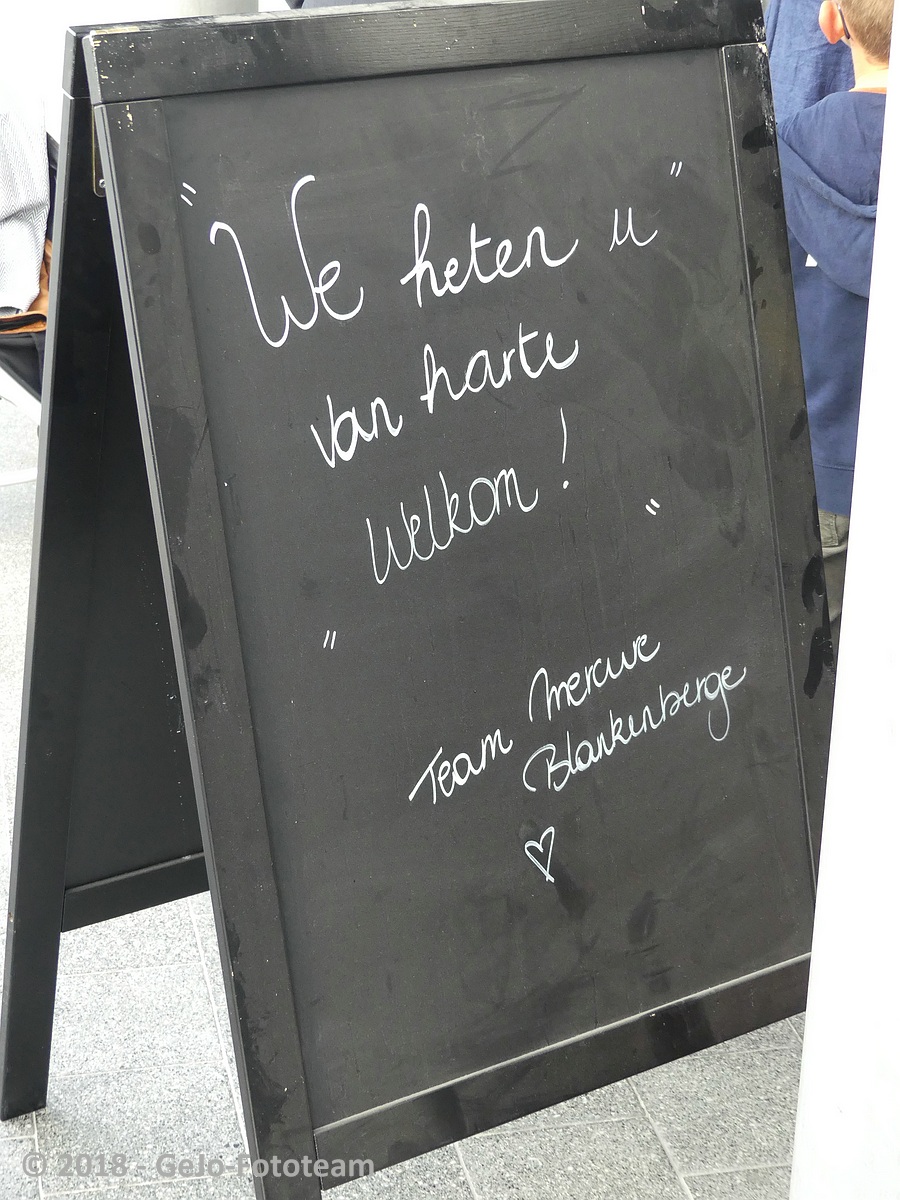 " We heten u "
van harte
Welkom !
" "
Team Mercure
Blankenberge
♡
© 2018 - GeJo-Fototeam